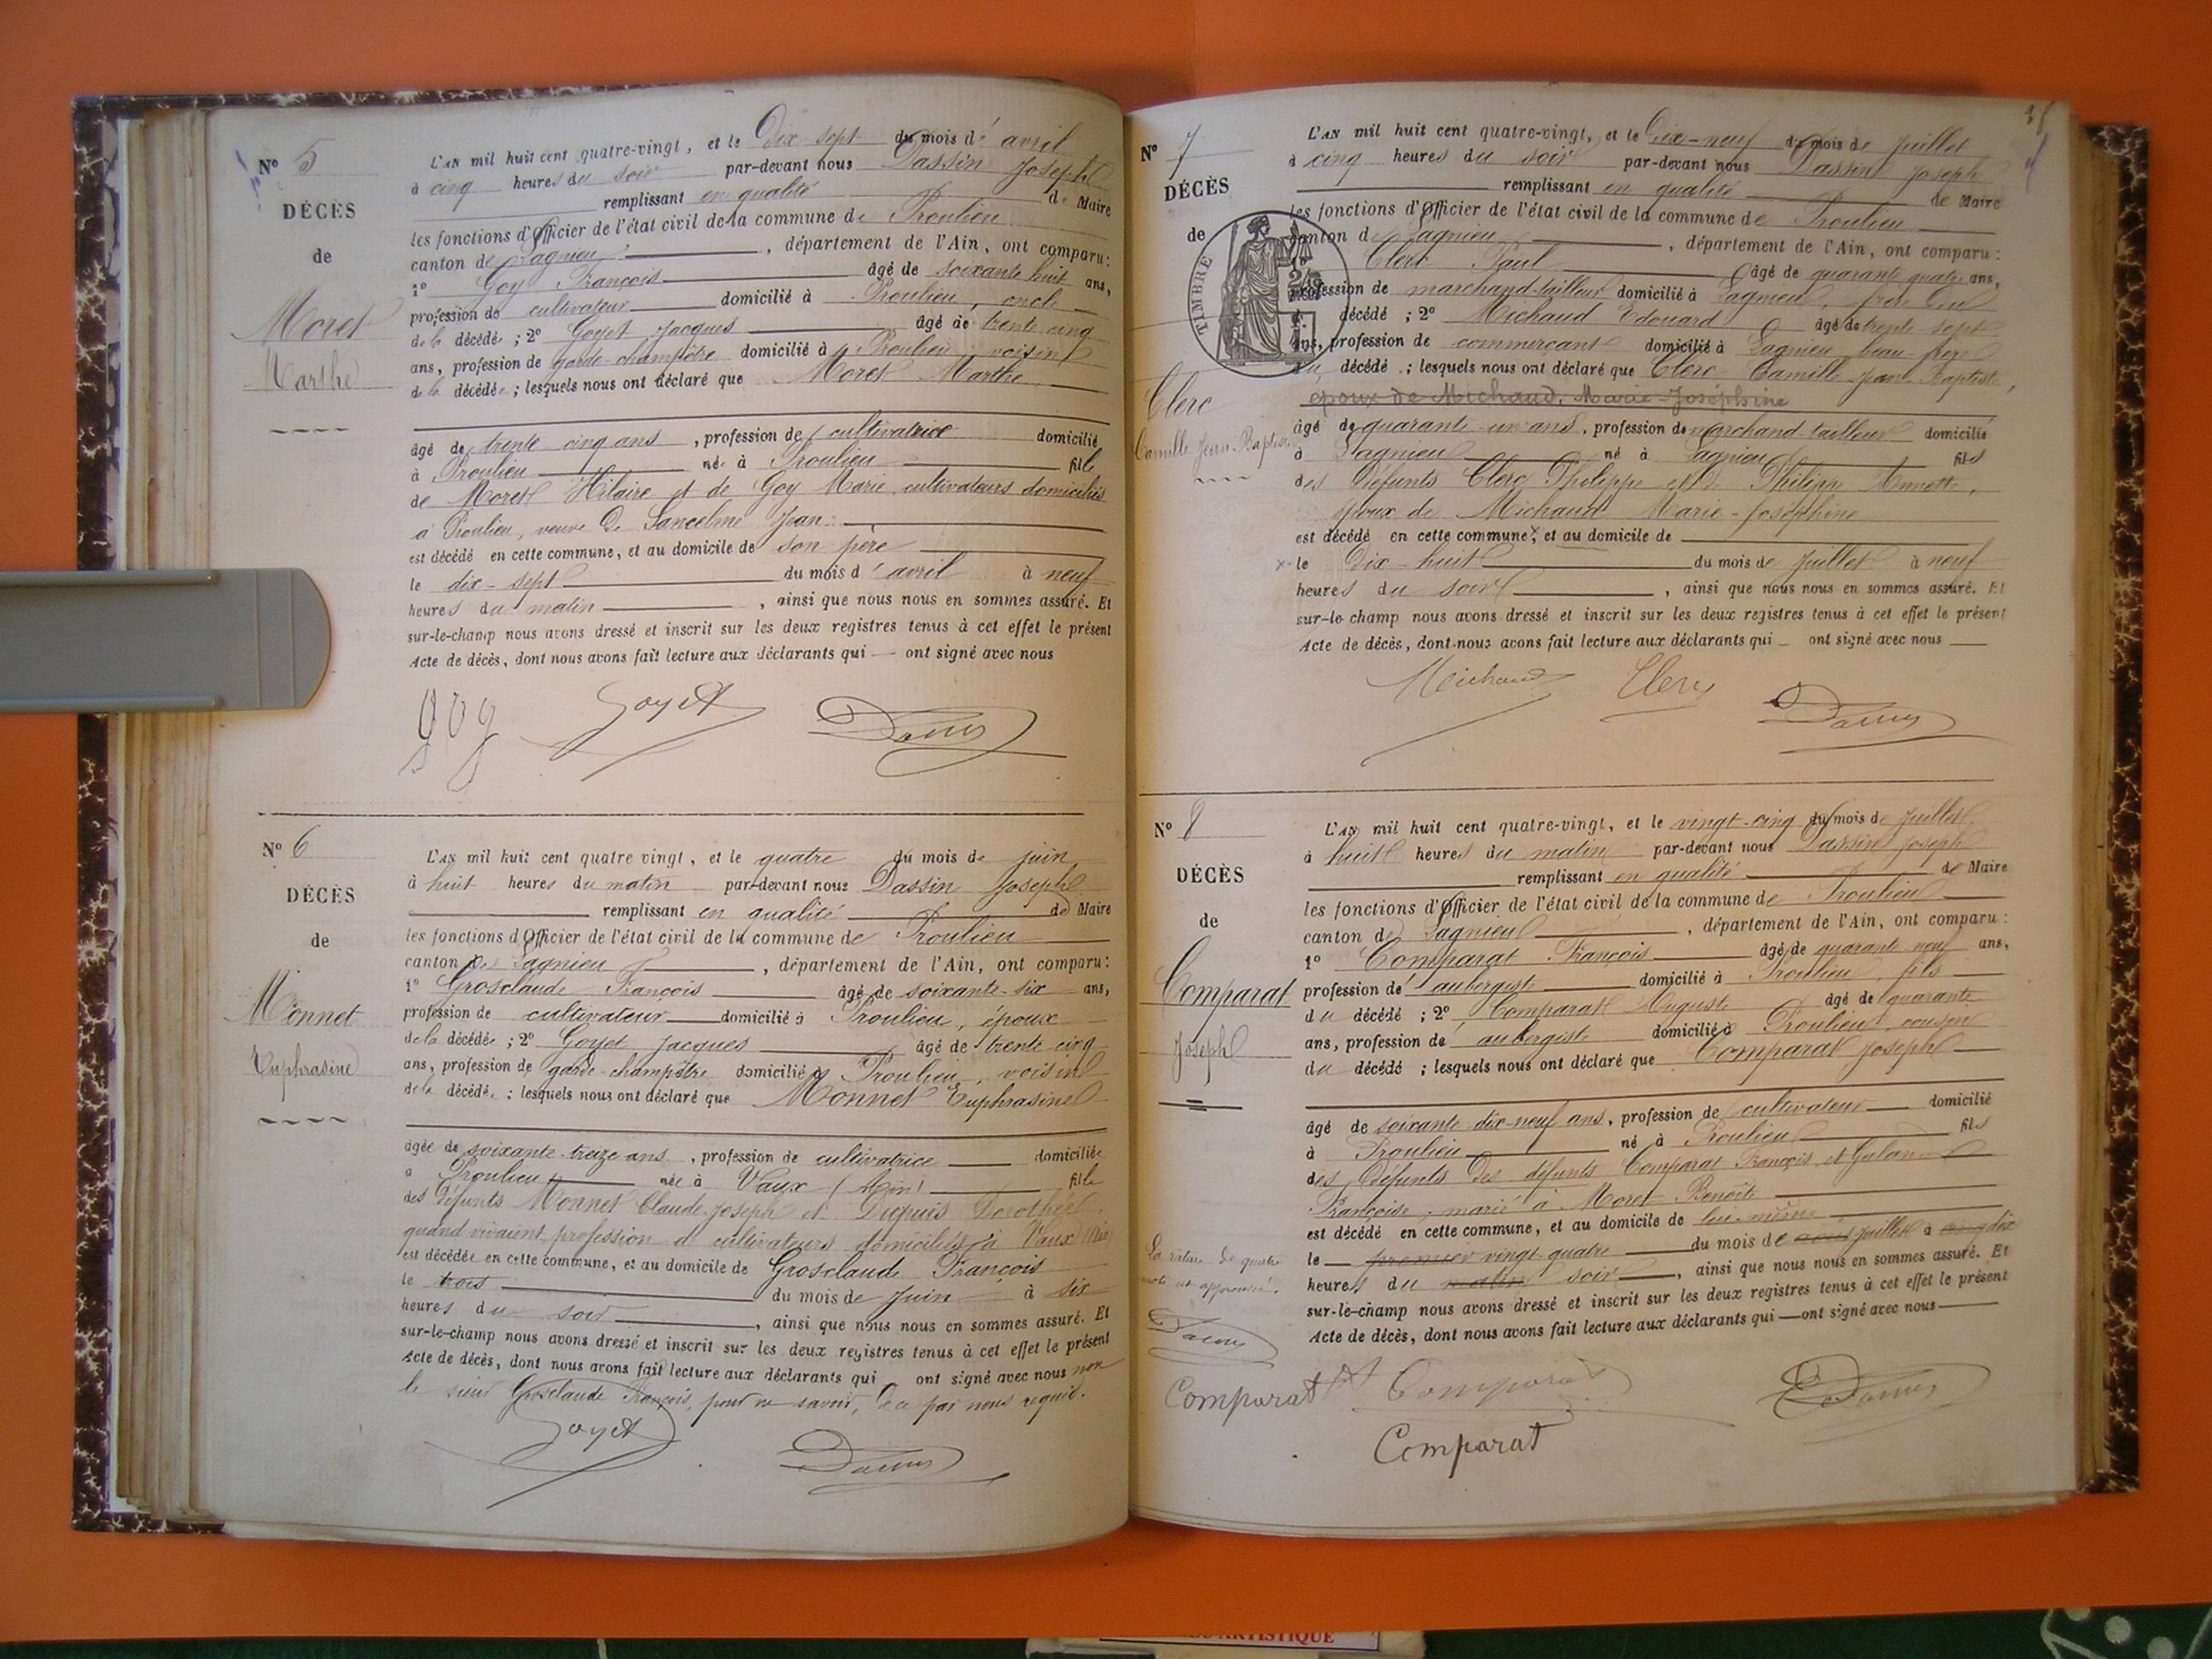 Nº 5
DÉCÈS
de
Moret
Marthe
L'AN mil huit cent quatre-vingt, et le Dix sept du mois d' avril
à cinq heures du soir par-devant nous Dassin Joseph
remplissant en qualité de Maire
les fonctions d'Officier de l'état civil de la commune de Proulieu
canton de Lagnieu, département de l'Ain, ont comparu:
1º Goy François âgé de soixante huit ans,
profession de cultivateur domicilié à Proulieu, oncle
de la décédée ; 2º Goyet Jacques âgé de trente cinq
ans, profession de garde-champêtre domicilié à Proulieu, voisin
de la décédée ; lesquels nous ont déclaré que Moret Marthe
âgé de trente cinq ans, profession de cultivatrice domicilié
à Proulieu née à Proulieu fille
de Moret Hilaire et de Goy Marie cultivateurs domiciliés
à Proulieu, veuve de Lancelme Jean
est décédé en cette commune, et au domicile de son père
le dix-sept du mois d'avril à neuf
heures du matin, ainsi que nous nous en sommes assuré. Et
sur-le-champ nous avons dressé et inscrit sur les deux registres tenus à cet effet le présent
Acte de décès, dont nous avons fait lecture aux déclarants qui ont signé avec nous
Goyet Dassin
Nº 6
DÉCÈS
de
Monnet
Euphrasine
L'AN mil huit cent quatre vingt, et le quatre du mois de juin
à huit heures du matin par-devant nous Dassin Joseph
remplissant en qualité de Maire
les fonctions d'Officier de l'état civil de la commune de Proulieu
canton de Lagnieu, département de l'Ain, ont comparu:
1º Grosclaude François âgé de soixante-six ans,
profession de cultivateur domicilié à Proulieu, époux
de la décédée ; 2º Goyet Jacques âgé de trente cinq
ans, profession de garde-champêtre domicilié à Proulieu, voisin
de la décédée ; lesquels nous ont déclaré que Monnet Euphrasine
âgée de soixante-treize ans, profession de cultivatrice domiciliée
à Proulieu née à Vaux (Ain) fille
des défunts Monnet Claude-Joseph et Dupuis Dorothée,
quand vivaient profession de cultivateurs domiciliés à Vaux (Ain)
est décédée en cette commune, et au domicile de Grosclaude François
le trois du mois de Juin à six
heures du soir, ainsi que nous nous en sommes assuré. Et
sur-le-champ nous avons dressé et inscrit sur les deux registres tenus à cet effet le présent
Acte de décès, dont nous avons fait lecture aux déclarants qui ont signé avec nous non
le sieur Grosclaude François, pour ne savoir, de ce par nous requis.
Goyet Dassin
Nº 7
DÉCÈS
de
TIMBRE
Clerc
Camille Jean-Baptiste
L'AN mil huit cent quatre-vingt, et le Dix-neuf du mois de juillet
à cinq heures du soir par-devant nous Dassin Joseph
remplissant en qualité de Maire
les fonctions d'Officier de l'état civil de la commune de Proulieu
canton de Lagnieu, département de l'Ain, ont comparu:
Clerc Paul âgé de quarante quatre ans,
profession de marchand-tailleur domicilié à Lagnieu, frère du
décédé ; 2º Michaud Edouard âgé de trente-sept
ans, profession de commerçant domicilié à Lagnieu beau-frère
du décédé ; lesquels nous ont déclaré que Clerc Camille Jean-Baptiste,
époux de Michaud, Marie-Joséphine
âgé de quarante-un ans, profession de marchand-tailleur domicilié
à Lagnieu né à Lagnieu fils
des défunts Clerc Philippe et de Philippe Annette,
époux de Michaud Marie-Joséphine
est décédé en cette commune, et au domicile de
x le Dix-huit du mois de juillet à neuf
heures du soir, ainsi que nous nous en sommes assuré. Et
sur-le-champ nous avons dressé et inscrit sur les deux registres tenus à cet effet le présent
Acte de décès, dont nous avons fait lecture aux déclarants qui ont signé avec nous
Michaud Clerc Dassin
Nº 8
DÉCÈS
de
Comparat
Joseph
L'AN mil huit cent quatre-vingt, et le vingt-cinq du mois de juillet
à huit heures du matin par-devant nous Dassin Joseph
remplissant en qualité de Maire
les fonctions d'Officier de l'état civil de la commune de Proulieu
canton de Lagnieu, département de l'Ain, ont comparu:
1º Comparat François âgé de quarante neuf ans,
profession de aubergiste domicilié à Proulieu, fils
du décédé ; 2º Comparat Auguste âgé de quarante
ans, profession de aubergiste domicilié à Proulieu, cousin
du décédé ; lesquels nous ont déclaré que Comparat Joseph
âgé de soixante dix-neuf ans, profession de cultivateur domicilié
à Proulieu né à Proulieu fils
des défunts des défunts Comparat François et Galan
Françoise, marié à Moret Benoîte
est décédé en cette commune, et au domicile de lui-même
le premier vingt-quatre du mois de août juillet à cinq dix
heures du matin soir, ainsi que nous nous en sommes assuré. Et
sur-le-champ nous avons dressé et inscrit sur les deux registres tenus à cet effet le présent
Acte de décès, dont nous avons fait lecture aux déclarants qui ont signé avec nous
La rature de quatre
mots est approuvée.
Dassin
Comparat Comparat Dassin
Comparat
ARTISTIQUE